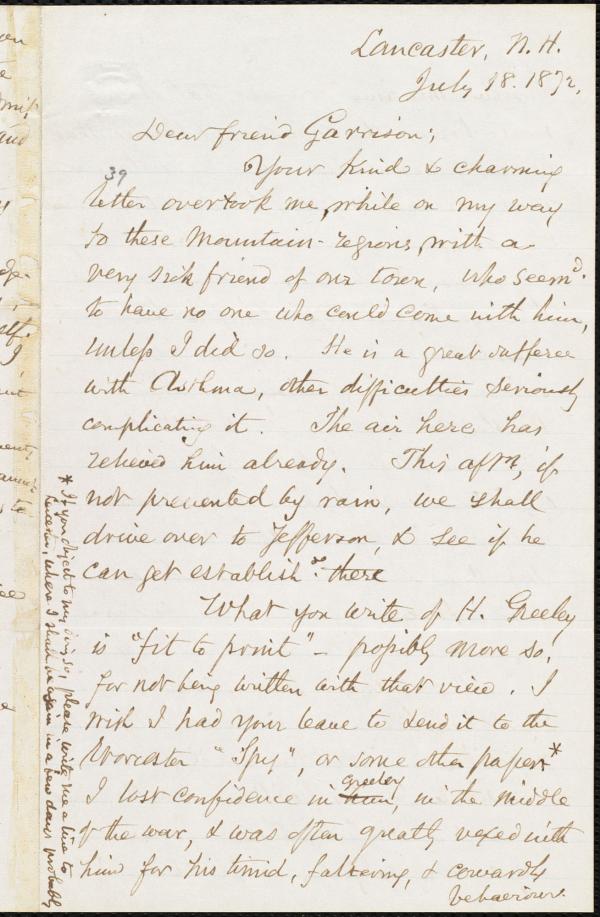 Lancaster, N.H.
July 18. 1872,
Dear friend Garrison;
39
Your kind & charming
letter overtook me, while on my way
to these Mountain-regions, with a
very sick friend of our town, who seem'd.
to have no one who could come with him,
unless I did so. He is a great sufferer
with Asthma, other difficulties seriously
complicating it. The air here has
relieved him already. This aftn, if
not prevented by rain, we shall
drive over to Jefferson, & see if he
can get establish'd there
What you write of H. Greeley
is "fit to print" - possibly more so,
for not being written with that view. I
wish I had your leave to send it to the
Worcester "Spy", or some other paper.*
I lost confidence in him, Greeley in the middle
of the war, & was often greatly vexed with
him for his timid, faltering, & cowardly
behaviour.
* If you object to my doing so, please write me a line to
Leicester, where I shall be again in a few days probably